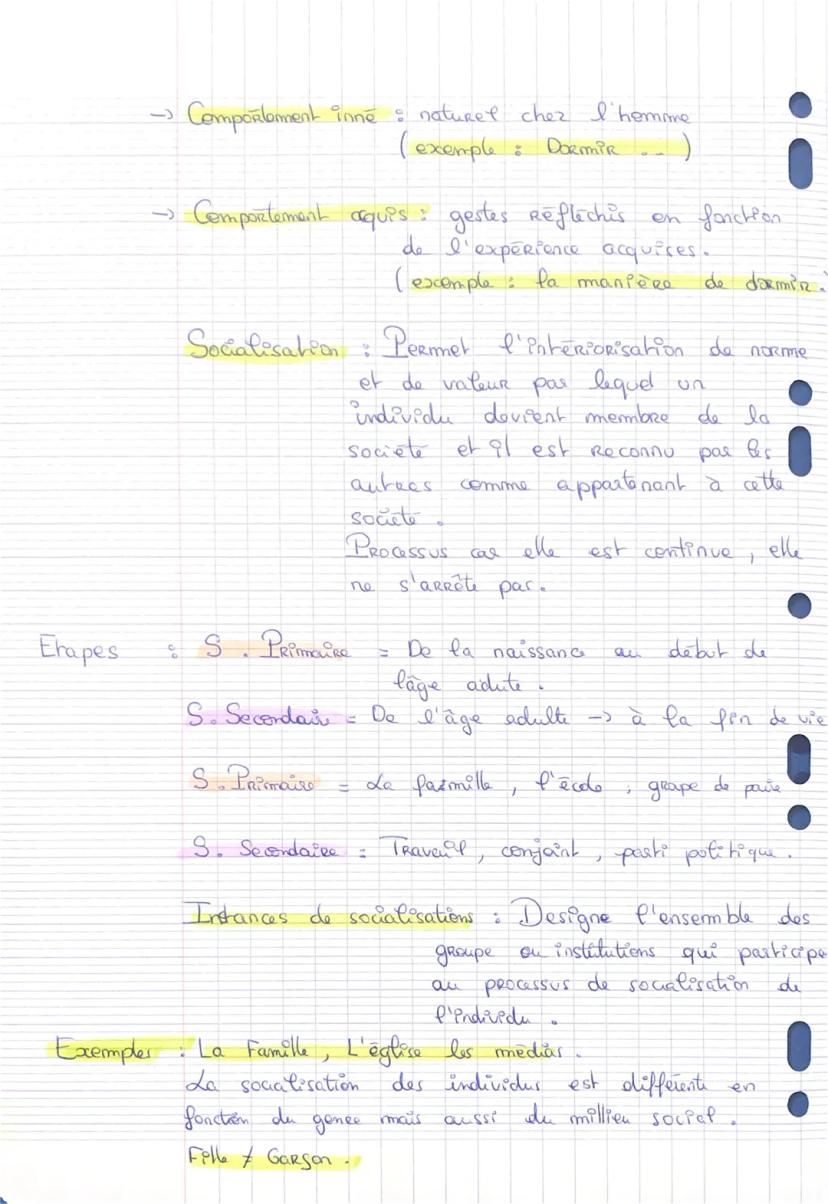 → Comportement inné : naturel chez l'homme
(exemple : Dormir ...)
→ Comportement aquis : gestes réfléchis en fonction
de l'expérience acquises.
(exemple : la manière de dormir.
Socialisation : Permet l'intériorisation de norme
et de valeur par lequel un
individu devient membre de la
société et il est reconnu par les
autres comme appartenant à cette
société.
Processus car elle est continue, elle
ne s'arrête pas.
Etapes : S. Primaire = De la naissance au début de
lâge adute.
S. Secondair = De l'âge adulte → à la fin de vie
S. Primaire = La farmille, l'école, grape de paire
S. Secondaire = Travail, conjoint, parti politique.
Intances de socialisations : Designe l'ensemble des
groupe ou institutions qui participe
au processus de socialisation de
l'individu.
Exemples : La Famille, L'église les médias.
La socialisation des individus est différente en
fonction du genre mais aussi du millieu social.
Fille ≠ Garson.